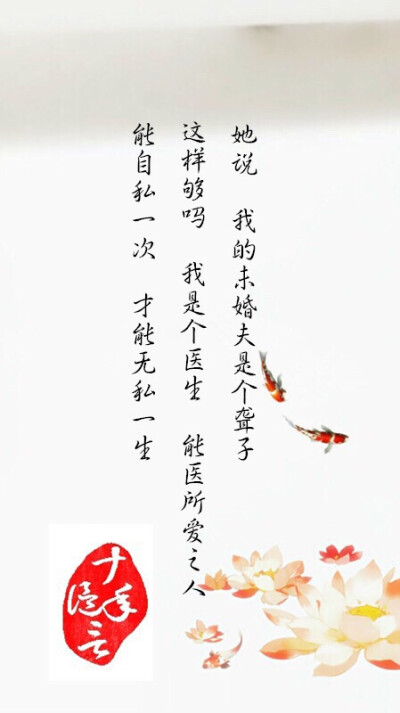 她说 我的未婚夫是个聋子
这样够吗 我是个医生 能医所爱之人
能自私一次 才能无私一生
十年